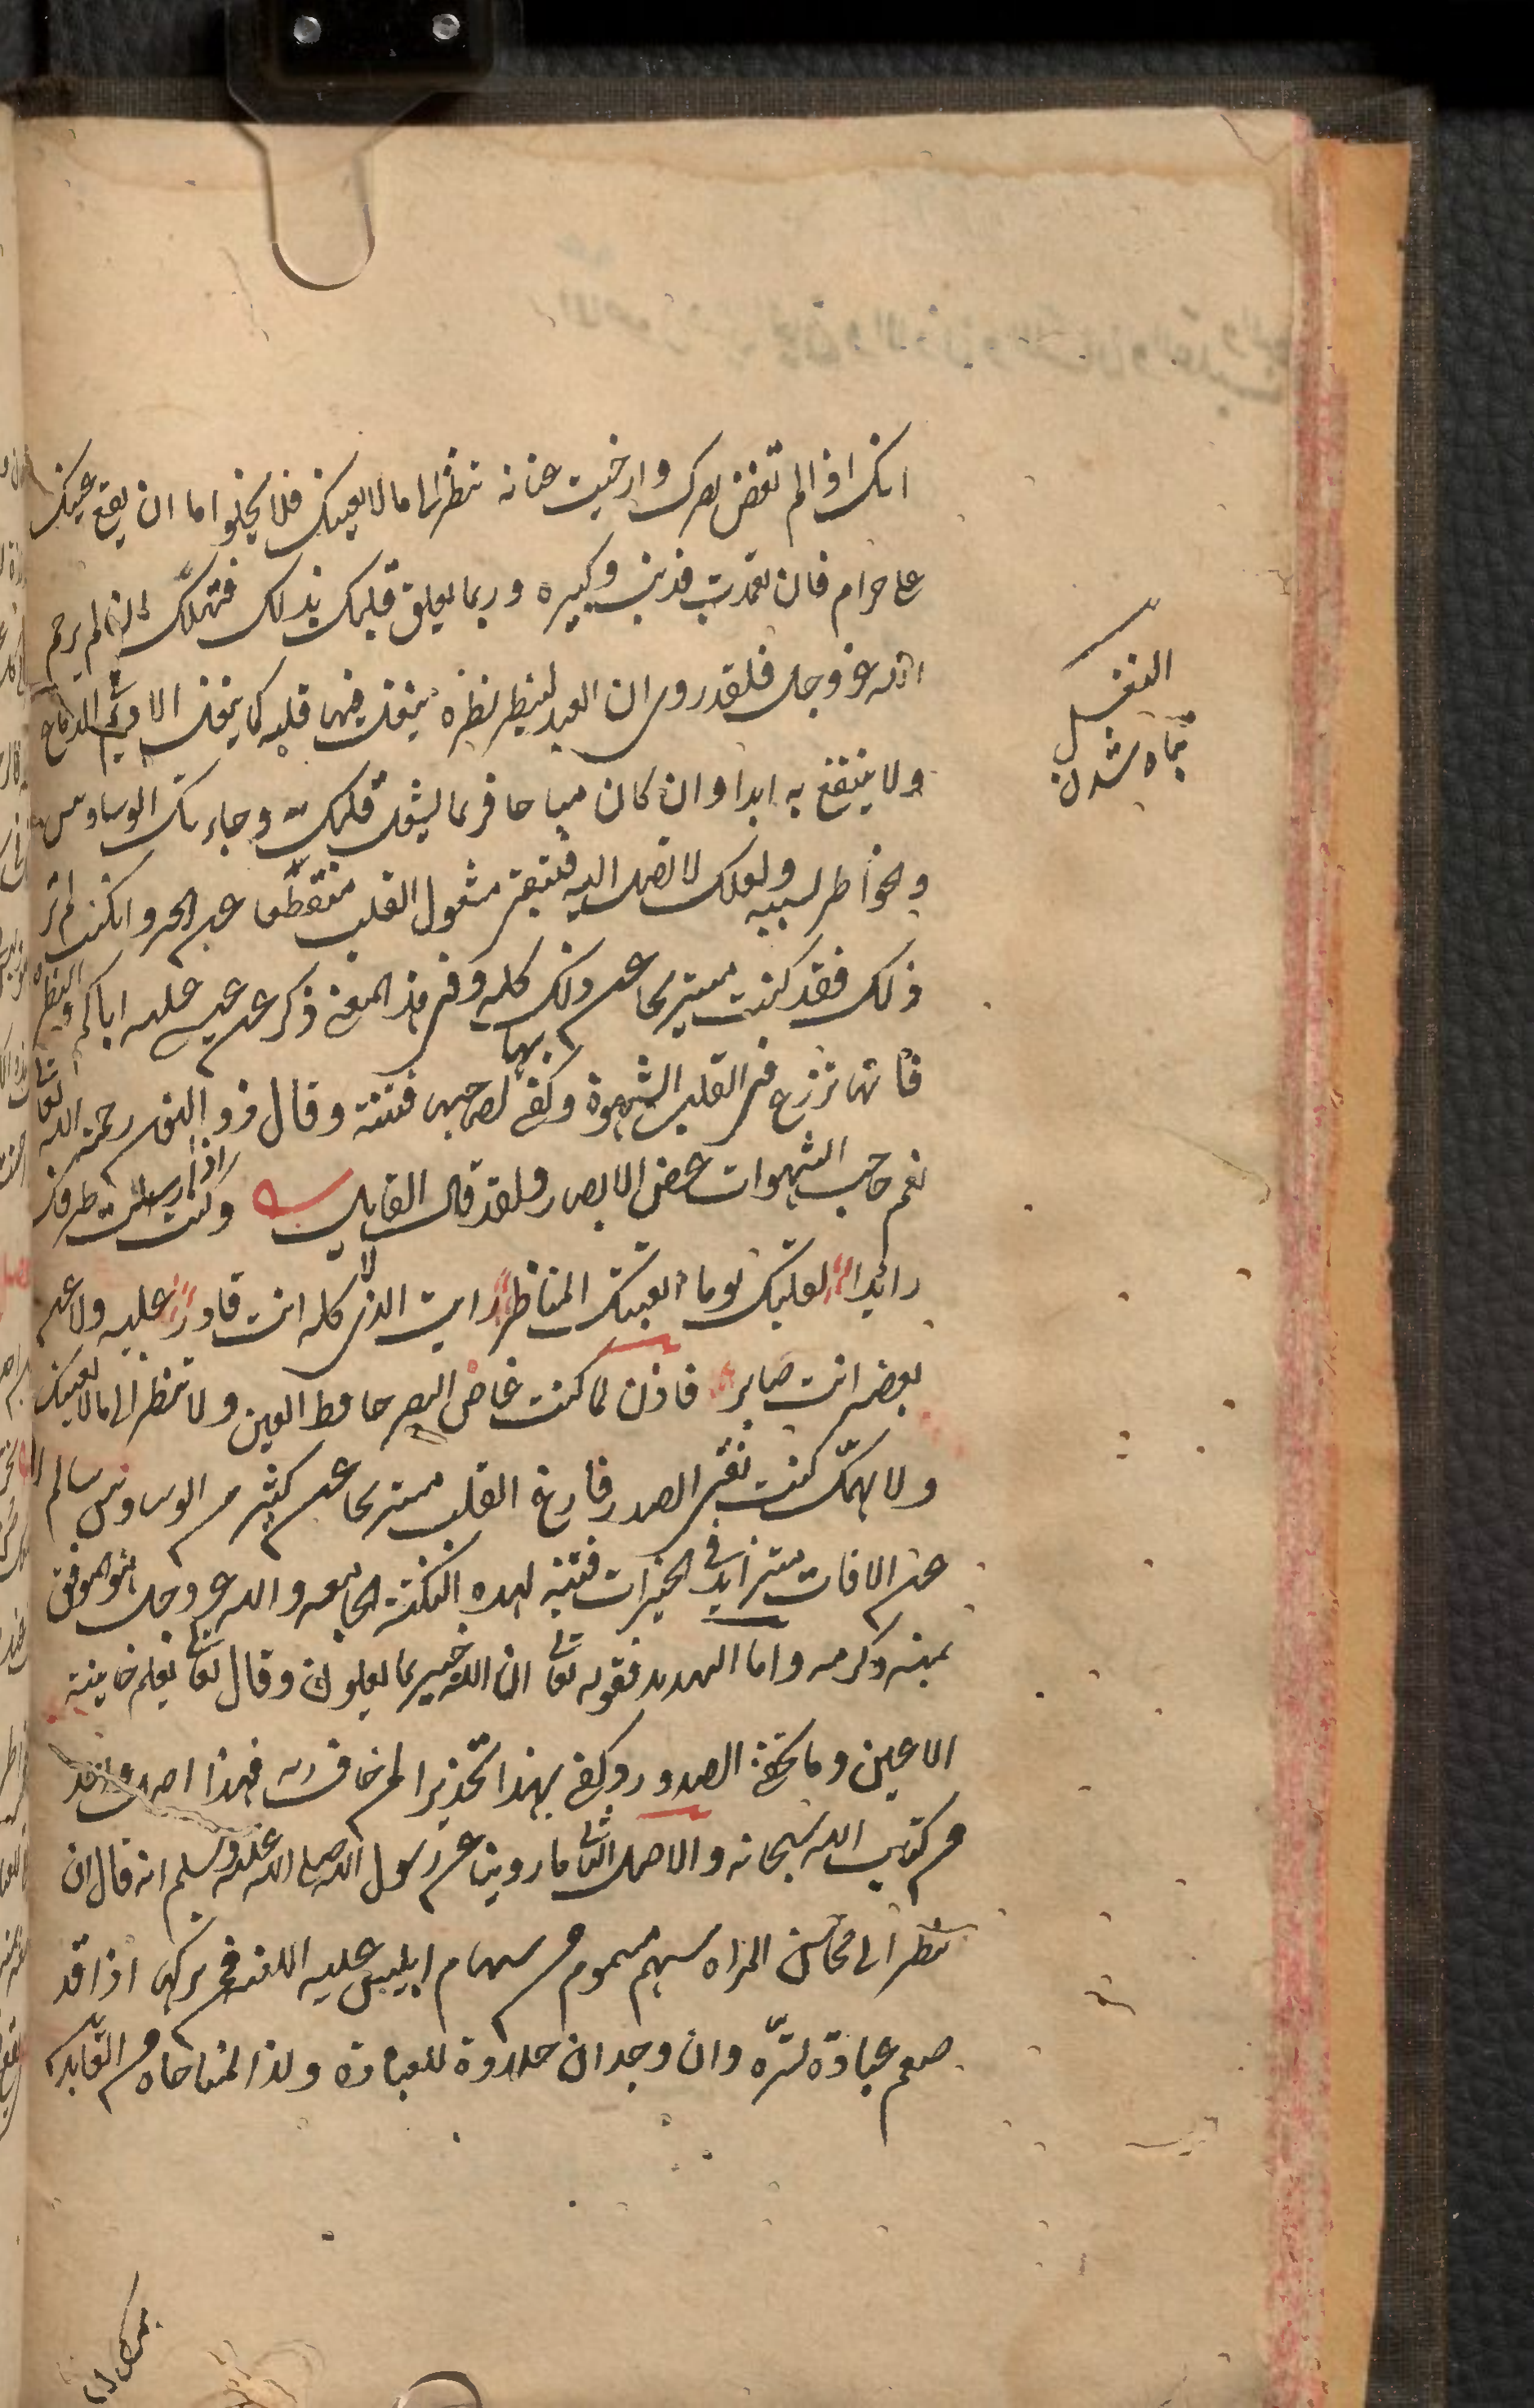 انك اذا لم تغض بصرك وارخيت عنانه تنظر الى ما لا يعنيك فلا يخلوا اما ان يقع عينك
على حرام فان تعمدت فذنب وكبيره وربما يعلق قلبك بذلك فتهلك ان لم يرحم
الله عز وجل فلقد روى ان العبد لينظر نظرة ينغل فيها قلبه كما ينغل الاديم في الدباغ
ولا ينتفع به ابدا وان كان مباحا فربما يشغل قلبك وجاءتك الوساوس
والخواطر بسببه ولعلك لا تصل اليه فتبقى مشغول القلب منقطعا عن الخير وان كنت لم تر
ذلك فقد كنت مستريحا عن ذلك كله وفى هذا المعنى ذكر عن عيسى عليه اياكم والنظرة
فانها تزرع فى القلب الشهوة وكفى بها لصاحبها فتنة وقال ذو النون رحمة الله تعالى
نعم حاجب الشهوات غض الابصار ولقد قال القايل وكنت اذا ارسلت طرفك
رائدا لقلبك يوما اتعبتك المناظر رايت الذى لا كله انت قادر عليه ولا عن
بعضه انت صابر فاذن لما كنت غاض البصر حافظ العين ولا تنظر الى ما لا يعنيك
ولا يهمك كنت نقى الصدر فارغ القلب مستريحا عن كثير من الوساوس سالم
عن الافات متزايد فى الخيرات فتنبه لهذه النكتة الجامعه والله عز وجل هو الموفق
بمنه وكرمه واما التهديد فقوله تعالى ان الله خبير بما يعملون وقال تعالى يعلم خاينة
الاعين وما تخفى الصدور وكفى بهذا تحذيرا لمن خاف ربه فهذا اصل واحد
من كتاب الله سبحانه والاصل الثانى ما روينا عن رسول الله صلى الله عليه وسلم انه قال ان
نظر الى محاسن المراه سهم مسموم من سهام ابليس عليه اللعنة فمن تركها اذاقه
طعم عبادة تسره وان وجدان حلاوة للعباده ولذة المناجاه من الفايده
النغل
تباه شدن